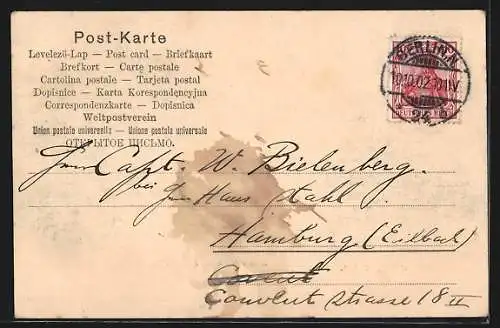 Post-Karte
Levelező-Lap — Post card — Briefkaart
Brefkort — Carte postale
Cartolina postale — Tarjeta postal
Dopisnice — Karta Korespondencyjna
Correspondenzkarte — Dopisnica
Weltpostverein
Union postale universelle — Unione postale universale
ОТКРЫТОЕ ПИСЬМО.
BERLIN N.
10.10.02. 10-11V
* 24 *
Herrn Capt. W. Bielenberg.
bei Herrn Hans Stahl.
Hamburg (Eilbeck)
Convent
Convent strasse 18 II